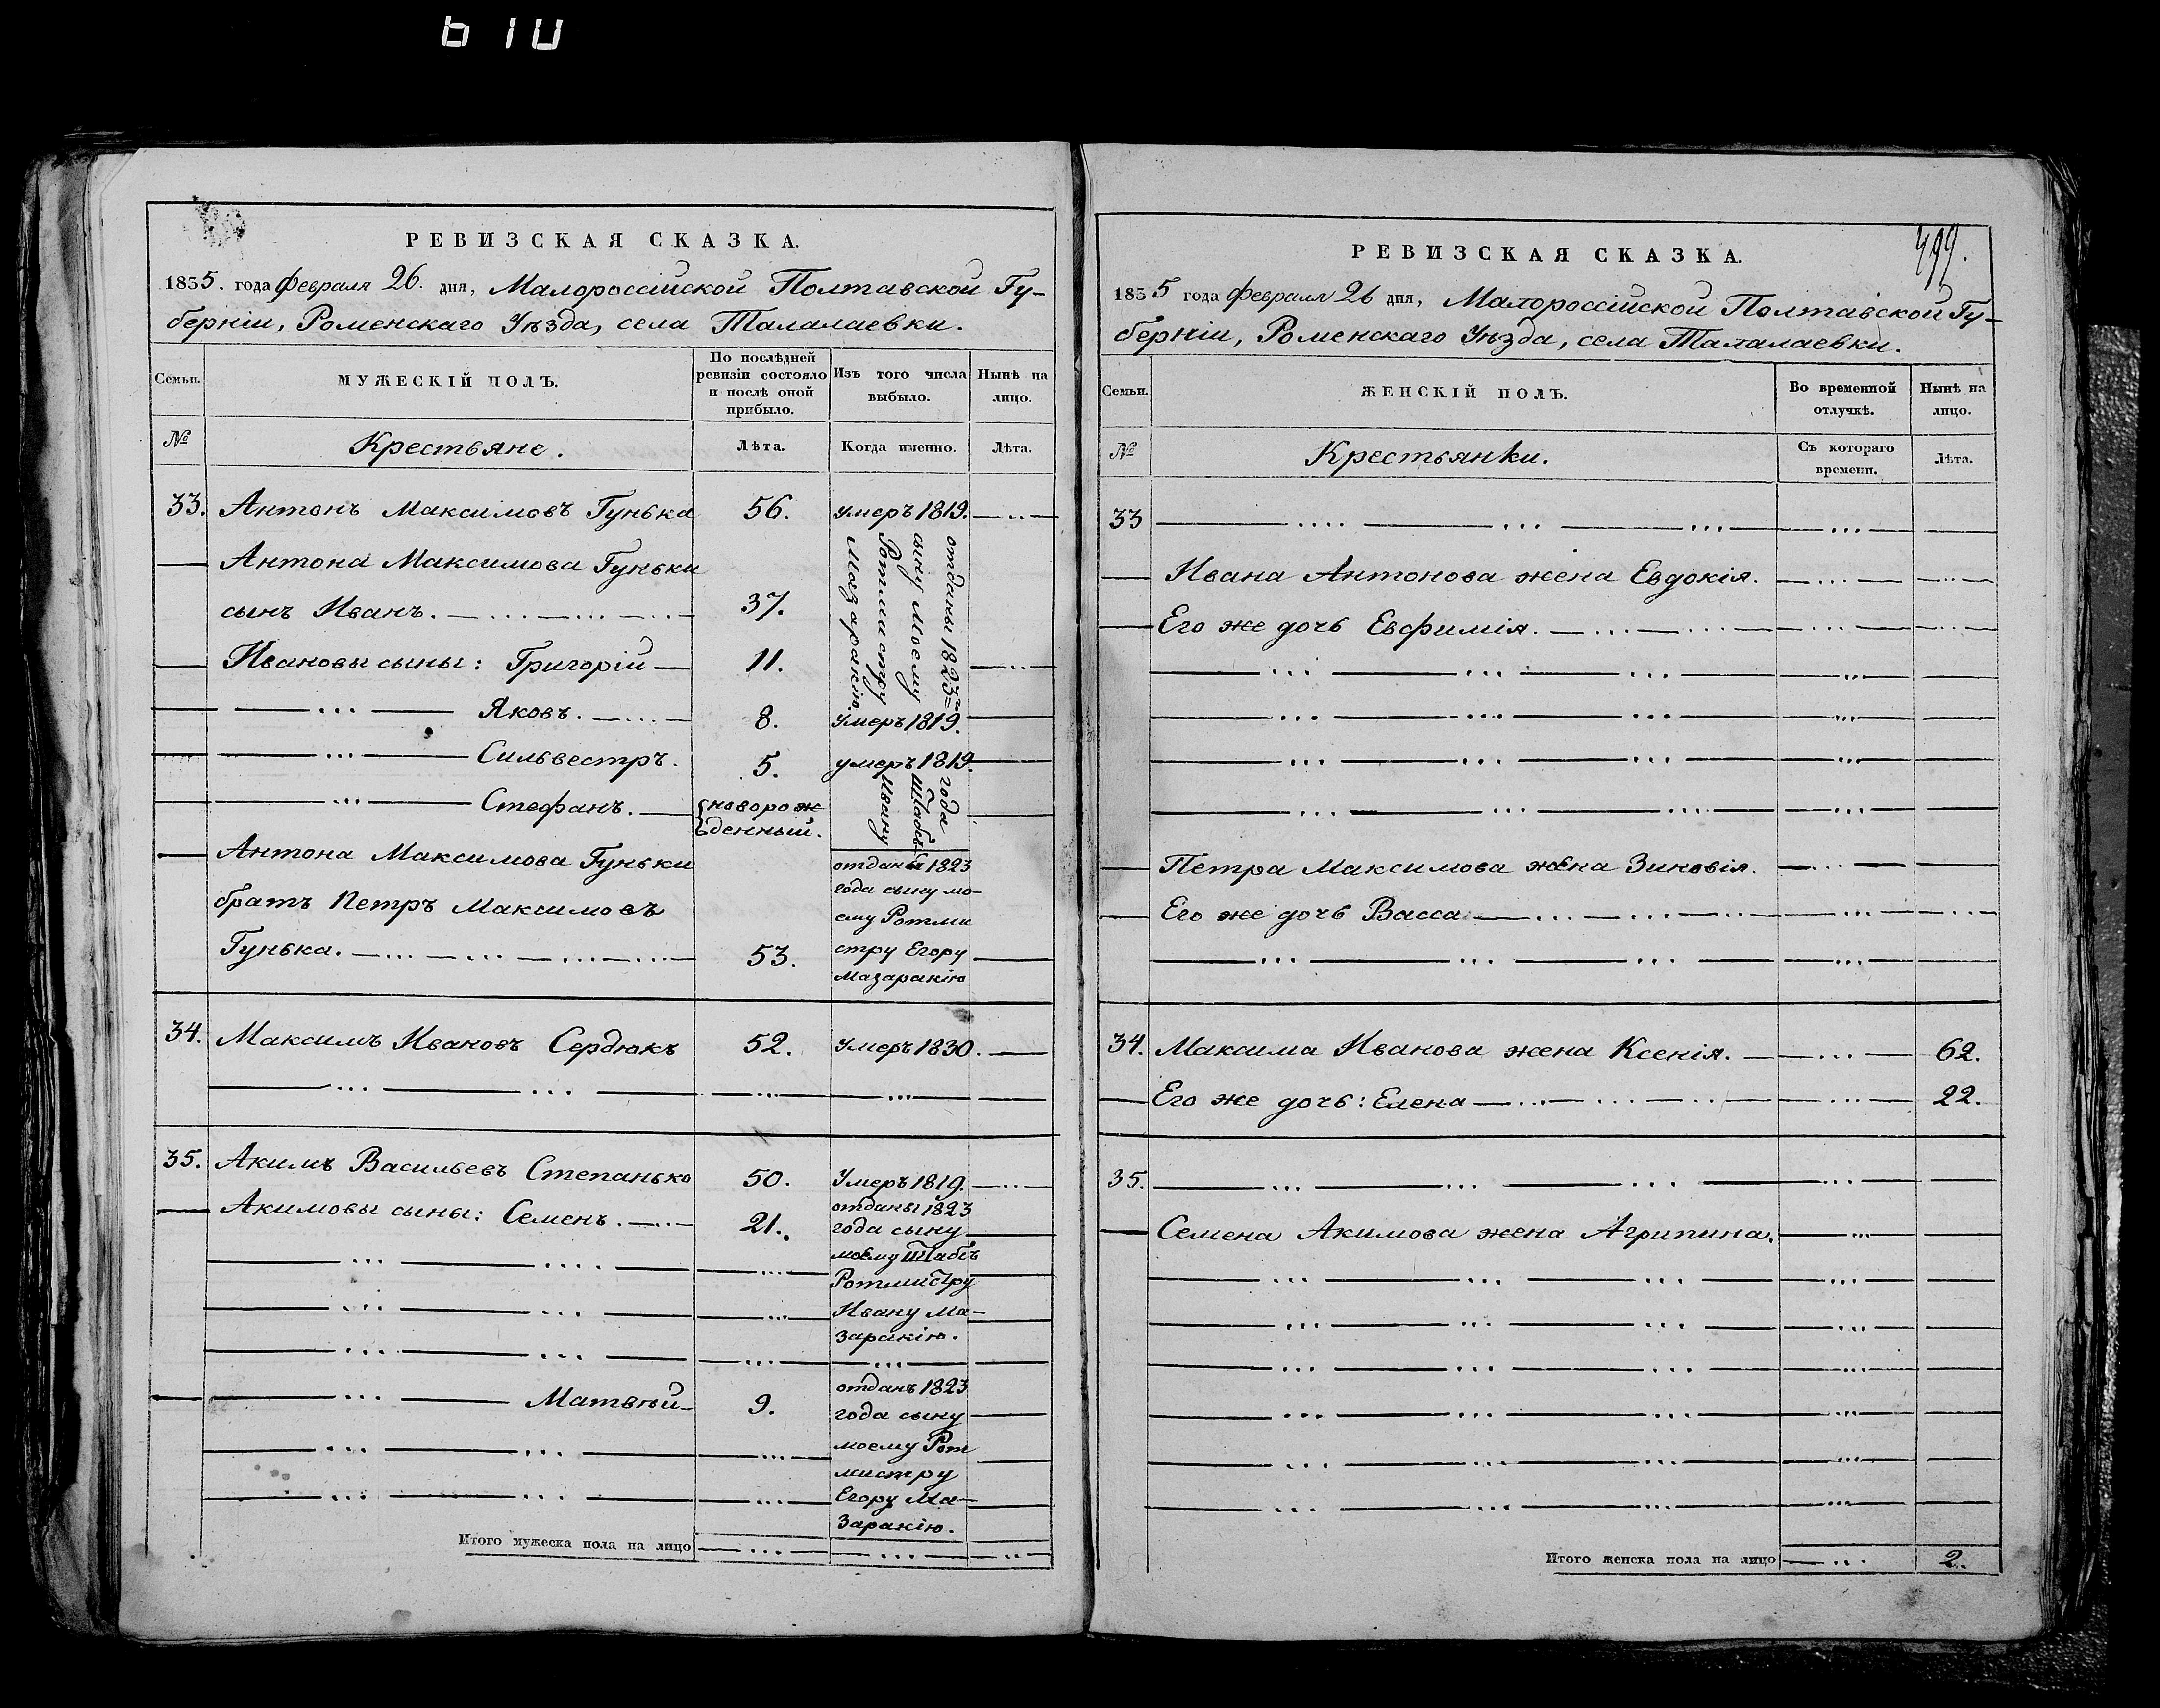 610
РЕВИЗСКАЯ СКАЗКА.
1835. года Февраля 26. дня, Малороссійской Полтавской Гу-
берніи, Роменскаго Уѣзда, села Талалаевки.
Семьи.
МУЖЕСКІЙ ПОЛЪ.
По послѣдней
ревизіи состояло
и послѣ оной
прибыло.
Изъ того числа
выбыло.
Нынѣ на
лицо.
№
Крестьяне.
Лѣта.
Когда именно.
Лѣта.
33. Антонъ Максимовъ Гунька 56. умеръ 1819.
Антона Максимова Гуньки
сынъ Иванъ. 37.
Ивановы сыны: Григорій 11.
отданы 1823 го
года
сыну моему
Штабъ
Ротмистру
Ивану
Мазаракію
Яковъ. 8. умеръ 1819.
Сильвестръ. 5. умеръ 1819.
Стефанъ. новорож
денный.
Антона Максимова Гуньки
братъ Петръ Максимовъ
Гунька. 53.
отданы 1823
года сыну мо-
ему Ротми
стру Егору
Мазаракію
34. Максимъ Ивановъ Сердюкъ 52. умеръ 1830.
35. Акимъ Васильевъ Степанько 50. Умеръ 1819.
Акимовы сыны: Семенъ. 21.
отданы 1823
года сыну
моему Штабъ
Ротмистру
Ивану Ма-
заракію.
Матвѣй 9.
отданъ 1823
года сыну
моему Рот
мистру
Егору Ма-
заракію.
Итого мужеска пола на лицо
499.
РЕВИЗСКАЯ СКАЗКА.
1835 года Февраля 26 дня, Малороссійской Полтавской Гу-
берніи, Роменскаго Уѣзда, села Талалаевки.
Семьи.
ЖЕНСКІЙ ПОЛЪ.
Во временной
отлучкѣ.
Нынѣ на
лицо.
№
Крестьянки.
Съ котораго
времени.
Лѣта.
33
Ивана Антонова жена Евдокія.
Его же дочь Евфимія.
Петра Максимова жена Зиновія.
Его же дочь Васса
34. Максима Иванова жена Ксенія. 62.
Его же дочь: Елена 22.
35.
Семена Акимова жена Агрипина.
Итого женска пола на лицо 2.